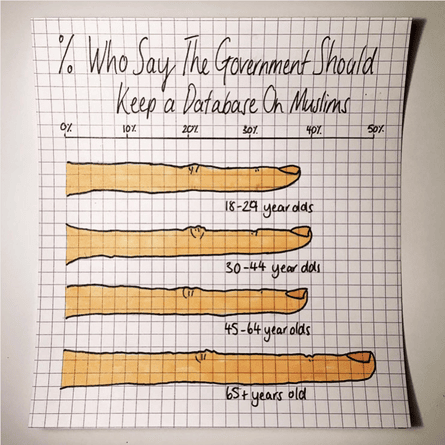 % Who Say The Government Should
Keep a Database On Muslims
0% 10% 20% 30% 40% 50%
18-29 year olds
30-44 year olds
45-64 year olds
65+ years old